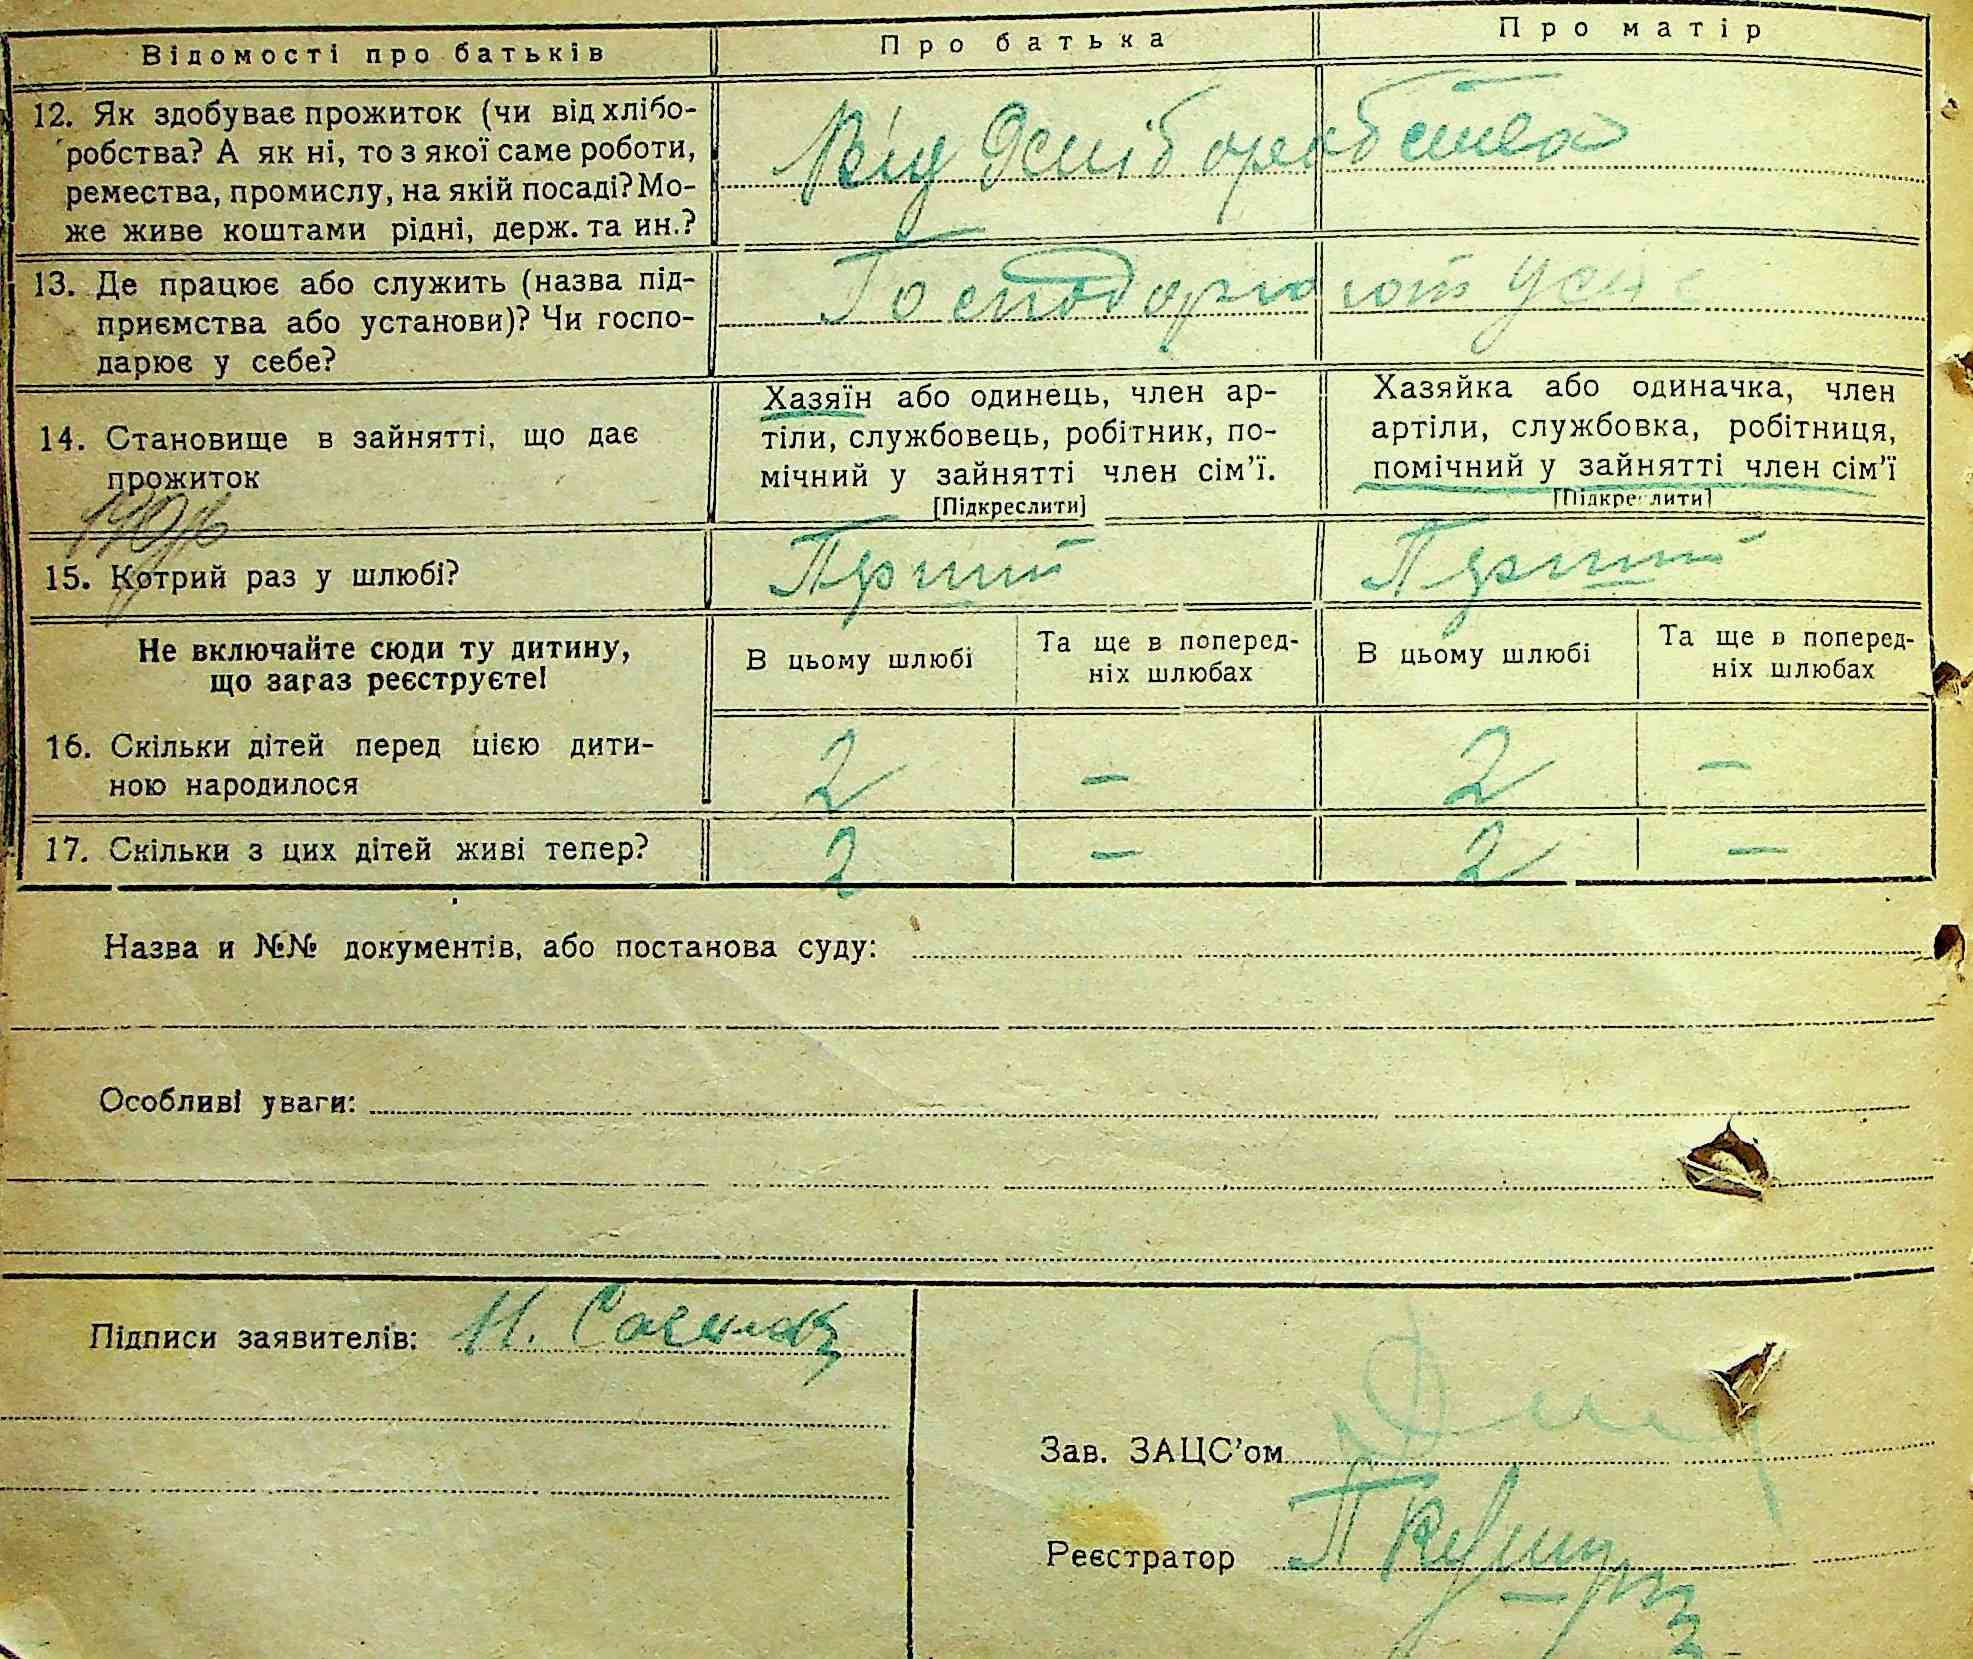 Відомості про батьків
Про батька
Про матір
12. Як здобуває прожиток (чи від хлібо-
робства? А як ні, то з якої саме роботи,
ремества, промислу, на якій посаді? Мо-
же живе коштами рідні, держ. та ин.?
Від хліборобства
13. Де працює або служить (назва під-
приємства або установи)? Чи госпо-
дарює у себе?
Господорюют у себе
14. Становище в зайнятті, що дає
прожиток
Хазяїн або одинець, член ар-
тіли, службовець, робітник, по-
мічний у зайнятті член сім'ї.
[Підкреслити]
Хазяйка або одиначка, член
артіли, службовка, робітниця,
помічний у зайнятті член сім'ї
[Підкреслити]
15. Котрий раз у шлюбі?
Перший
Перший
Не включайте сюди ту дитину,
що зараз реєструєте!
В цьому шлюбі
Та ще в поперед-
ніх шлюбах
В цьому шлюбі
Та ще в поперед-
ніх шлюбах
16. Скільки дітей перед цією дити-
ною народилося
2 – 2 –
17. Скільки з цих дітей живі тепер?
2 – 2 –
Назва и №№ документів, або постанова суду:
Особливі уваги:
Підписи заявителів: Н.
Зав. ЗАЦС'ом
Реєстратор